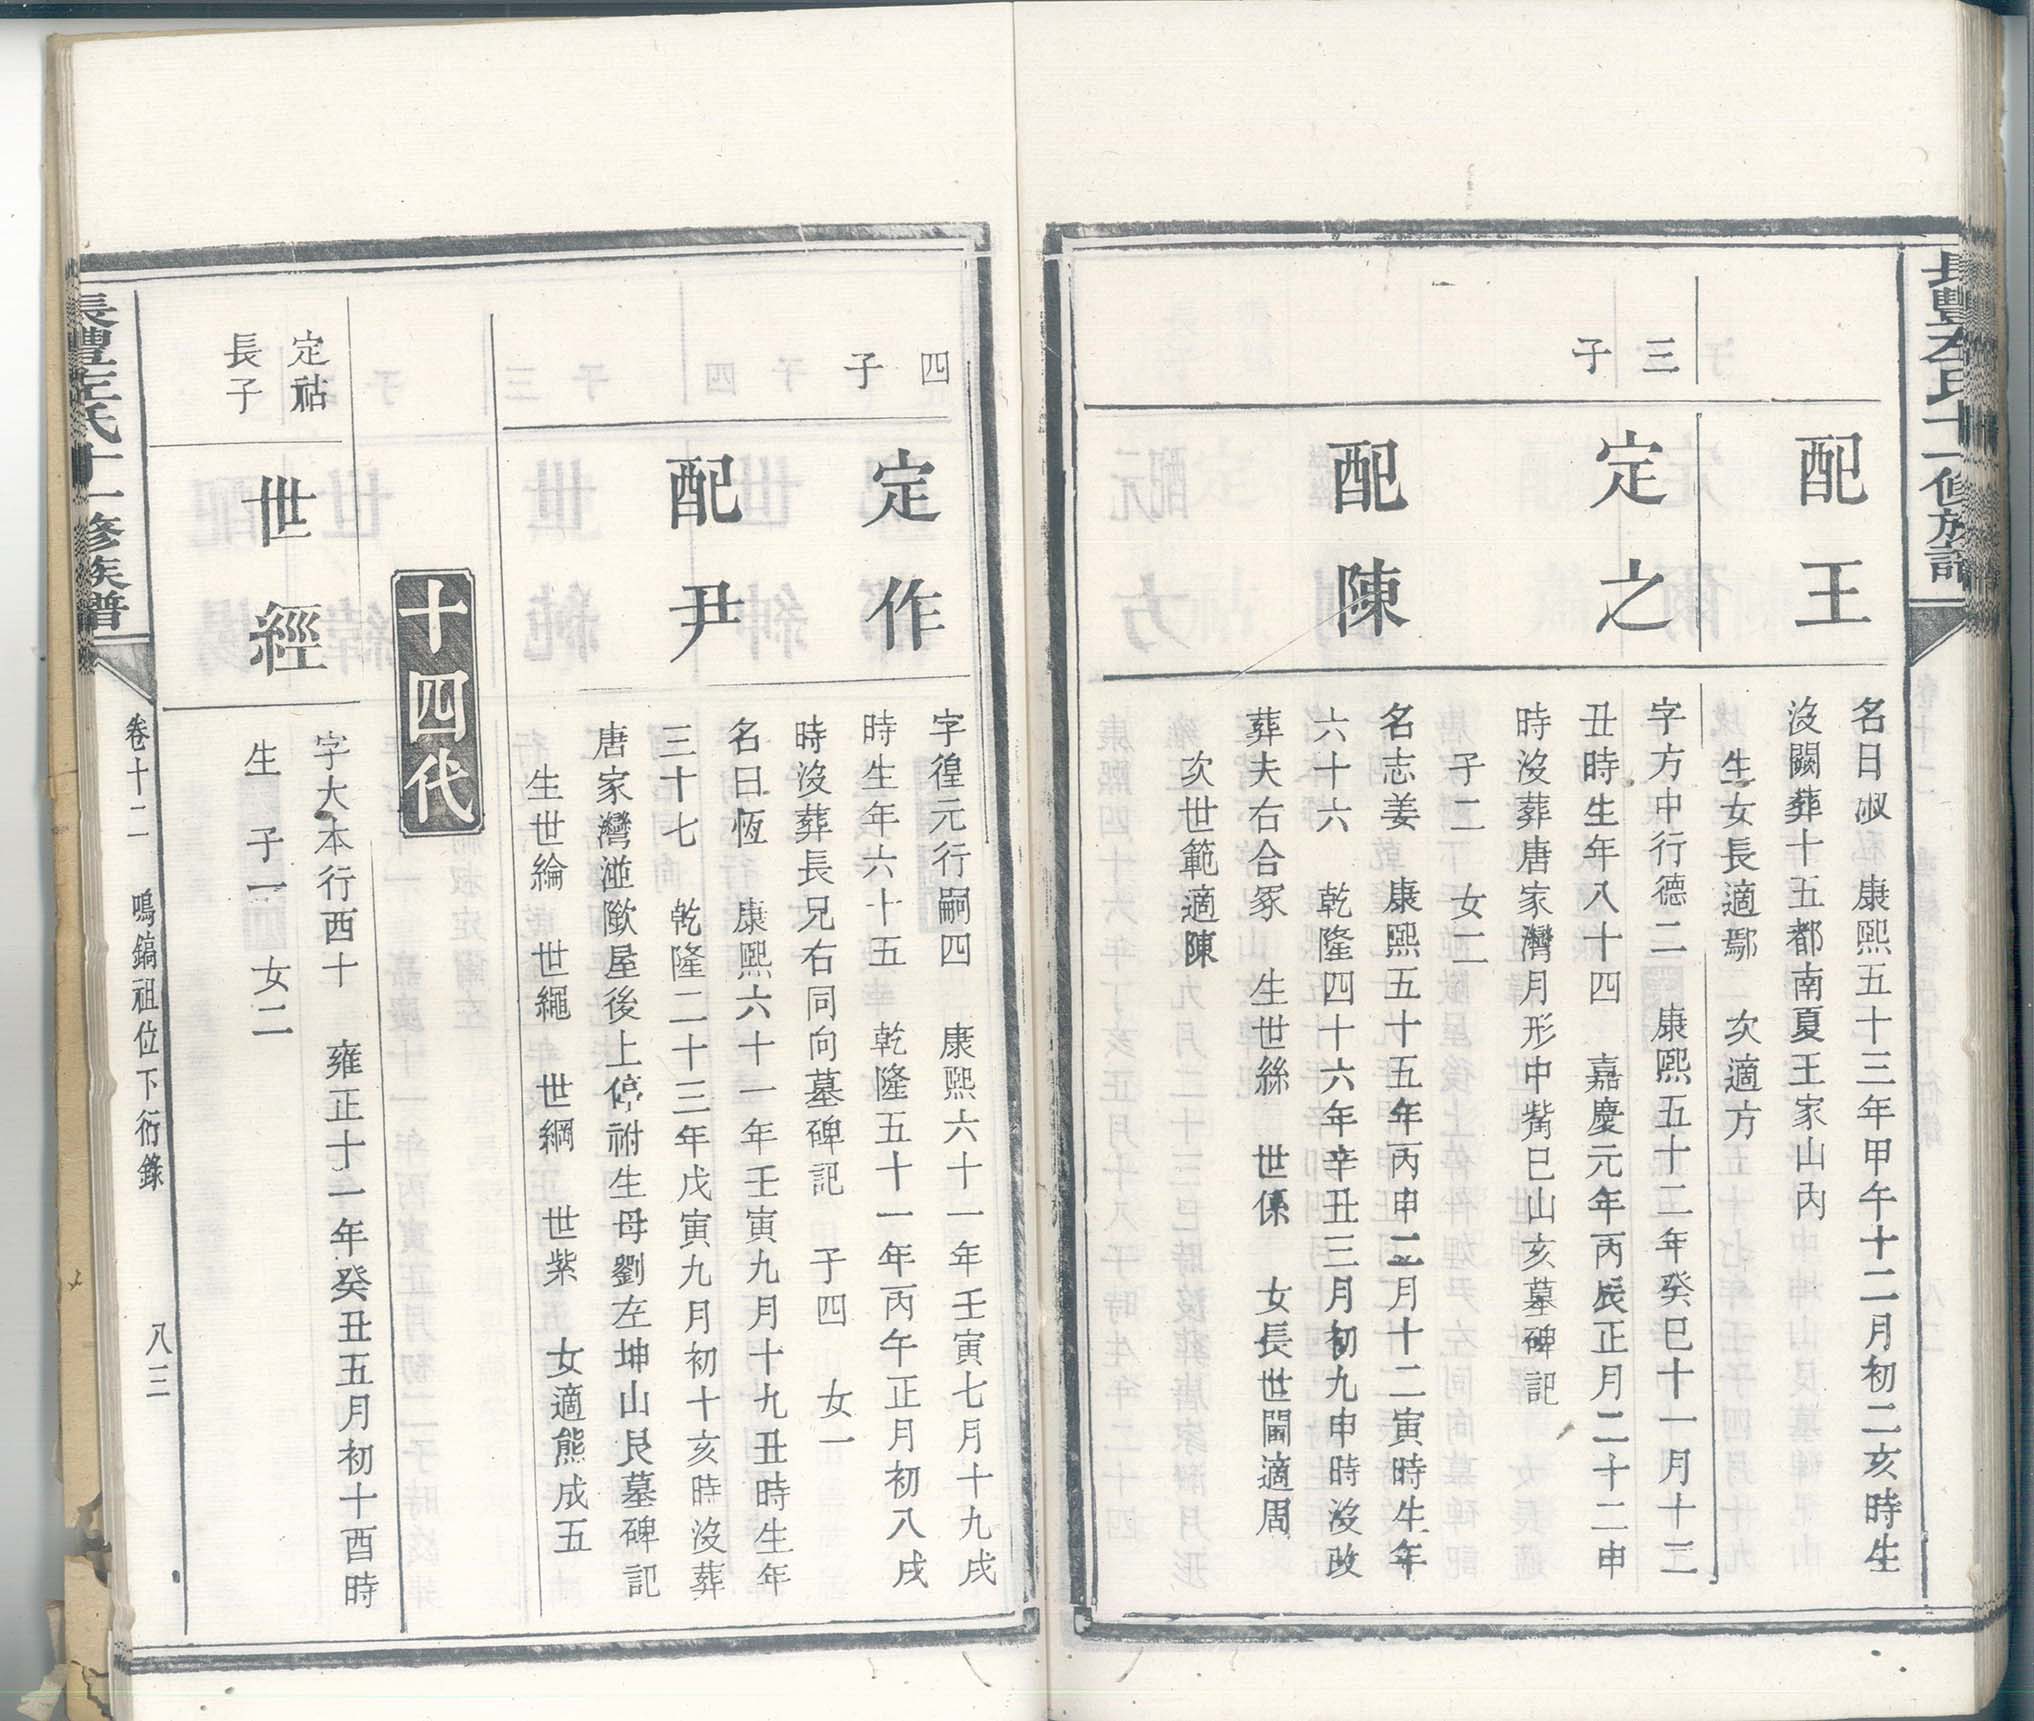 長豐左氏十一修族譜
配王
名日淑　康熙五十三年甲午十二月初二亥時生
沒闕葬十五都南夏王家山內
生女長適鄢　次適方
三子
定之
字方中行德二　康熙五十二年癸巳十一月十三
丑時生年八十四　嘉慶元年丙辰正月二十二申
時沒葬唐家灣月形中嘴巳山亥墓碑記
子二　女二
配陳
名志姜　康熙五十五年丙申二月十二寅時生年
六十六　乾隆四十六年辛丑三月初九申時沒改
葬夫右合冢　生世絲　世係　女長世閫適周
次世範適陳
四子
定作
字徨元行嗣四　康熙六十一年壬寅七月十九戌
時生年六十五　乾隆五十一年丙午正月初八戌
時沒葬長兄右同向墓碑記　子四　女一
配尹
名日恆　康熙六十一年壬寅九月十九丑時生年
三十七　乾隆二十三年戊寅九月初十亥時沒葬
唐家灣澁隞屋後上停祔生母劉左坤山艮墓碑記
生世綸　世繩　世綱　世紫　女適熊成五
十四代
定祜
長子
世經
字大本行西十　雍正十一年癸丑五月初十酉時
生　子一　女二
長豐左氏十一修族譜
卷十二　鳴鎬祖位下衍錄　八三